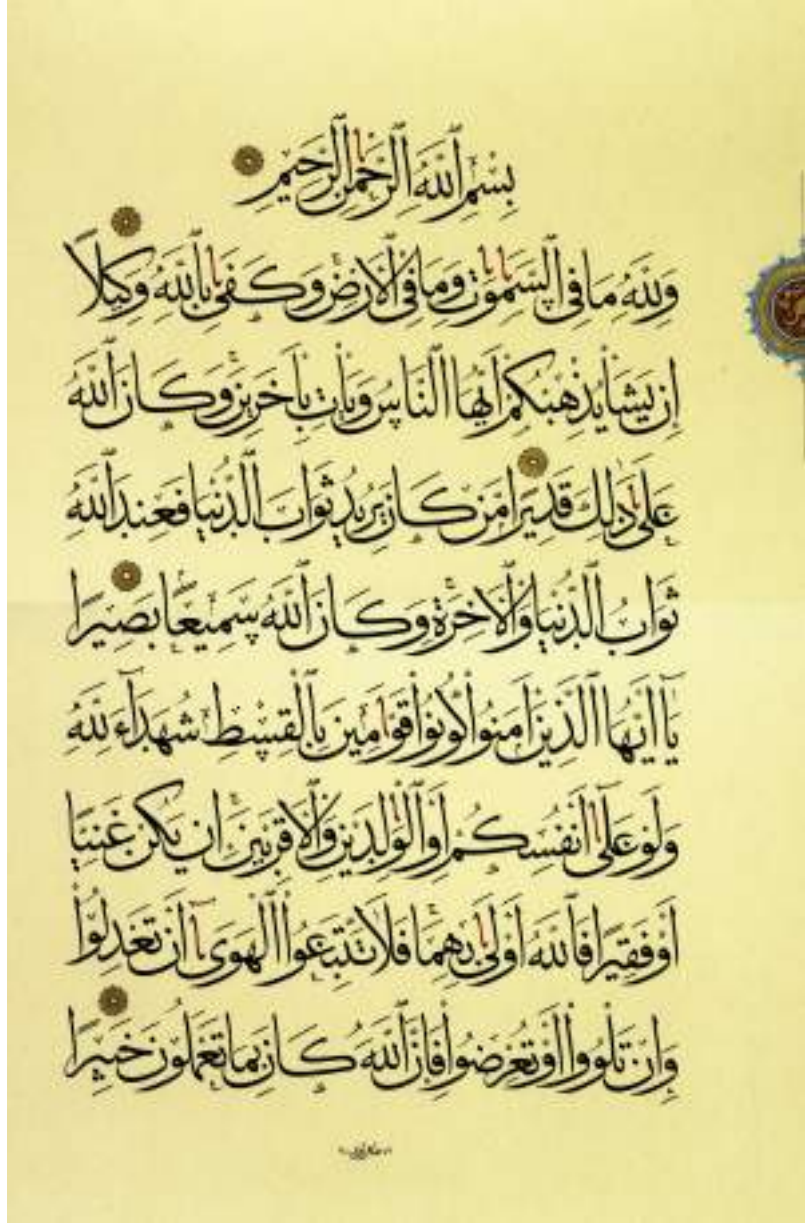 بِسْمِ ٱللَّهِ ٱلرَّحْمَٰنِ ٱلرَّحِيمِ
وَلِلَّهِ مَا فِى ٱلسَّمَٰوَٰتِ وَمَا فِى ٱلْأَرْضِ وَكَفَىٰ بِٱللَّهِ وَكِيلًا
إِن يَشَأْ يُذْهِبْكُمْ أَيُّهَا ٱلنَّاسُ وَيَأْتِ بِـَٔاخَرِينَ وَكَانَ ٱللَّهُ
عَلَىٰ ذَٰلِكَ قَدِيرًا مَن كَانَ يُرِيدُ ثَوَابَ ٱلدُّنْيَا فَعِندَ ٱللَّهِ
ثَوَابُ ٱلدُّنْيَا وَٱلْآخِرَةِ وَكَانَ ٱللَّهُ سَمِيعًا بَصِيرًا
يَا أَيُّهَا ٱلَّذِينَ آمَنُوا كُونُوا قَوَّامِينَ بِٱلْقِسْطِ شُهَدَآءَ لِلَّهِ
وَلَوْ عَلَىٰ أَنفُسِكُمْ أَوِ ٱلْوَٰلِدَيْنِ وَٱلْأَقْرَبِينَ إِن يَكُنْ غَنِيًّا
أَوْ فَقِيرًا فَٱللَّهُ أَوْلَىٰ بِهِمَا فَلَا تَتَّبِعُوا ٱلْهَوَىٰ أَن تَعْدِلُوا
وَإِن تَلْوُوا أَوْ تُعْرِضُوا فَإِنَّ ٱللَّهَ كَانَ بِمَا تَعْمَلُونَ خَبِيرًا